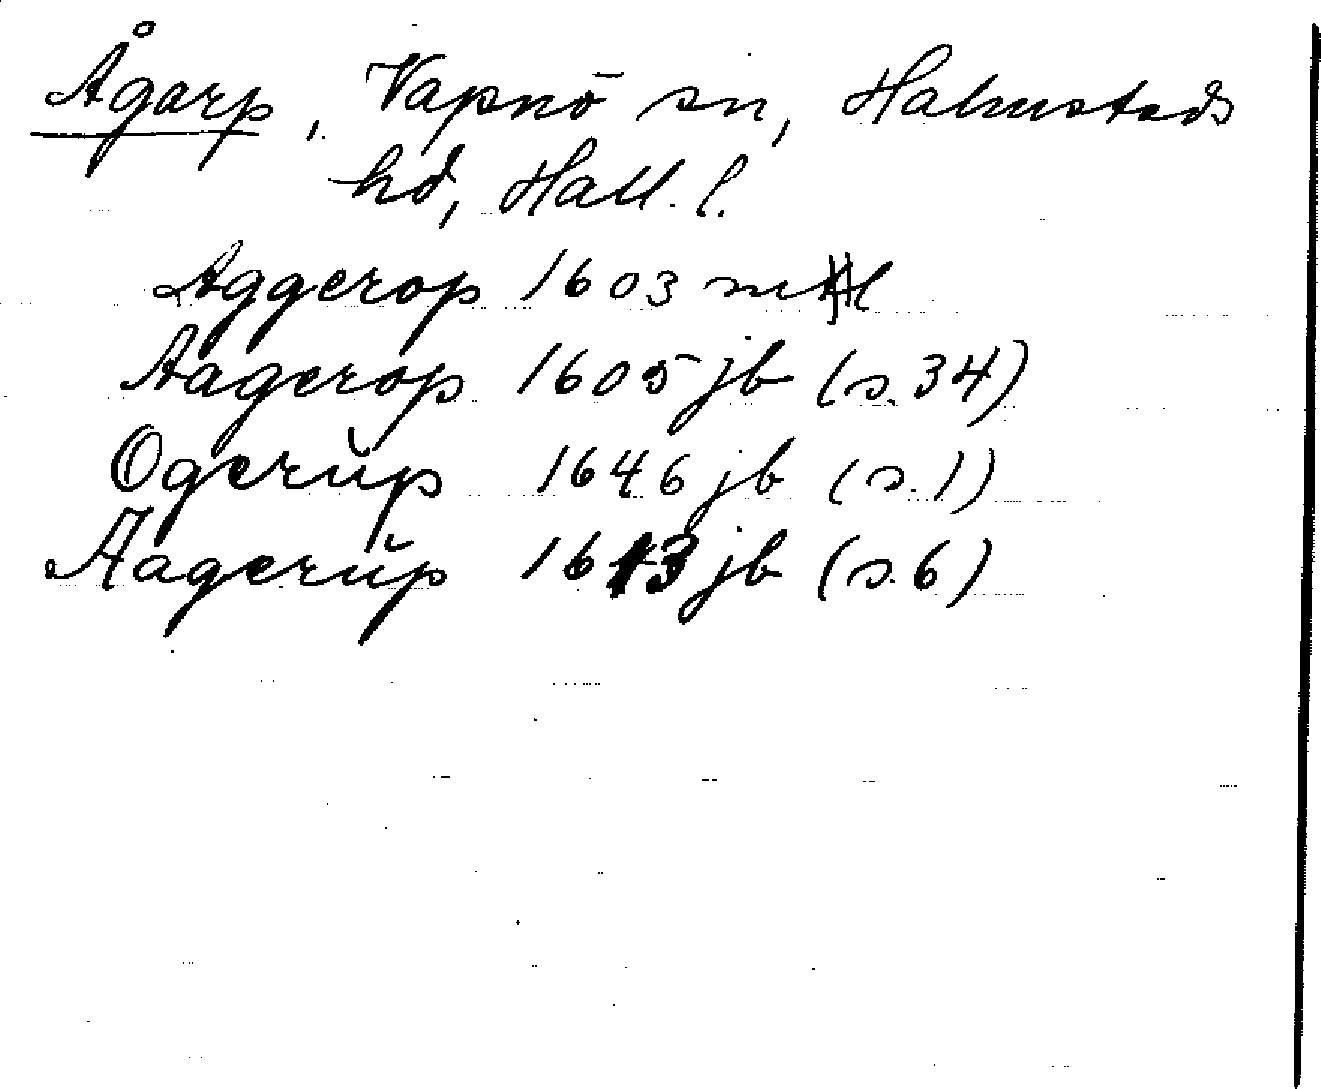 Ågarp, Vapnö sn, Halmstads
hd, Hall. l.
Aggerop 1603 mtl
Aagerop 1605 jb (s. 34)
Ogerŭp 1646 jb (s. 1)
Aagerŭp 1613 jb (s. 6)